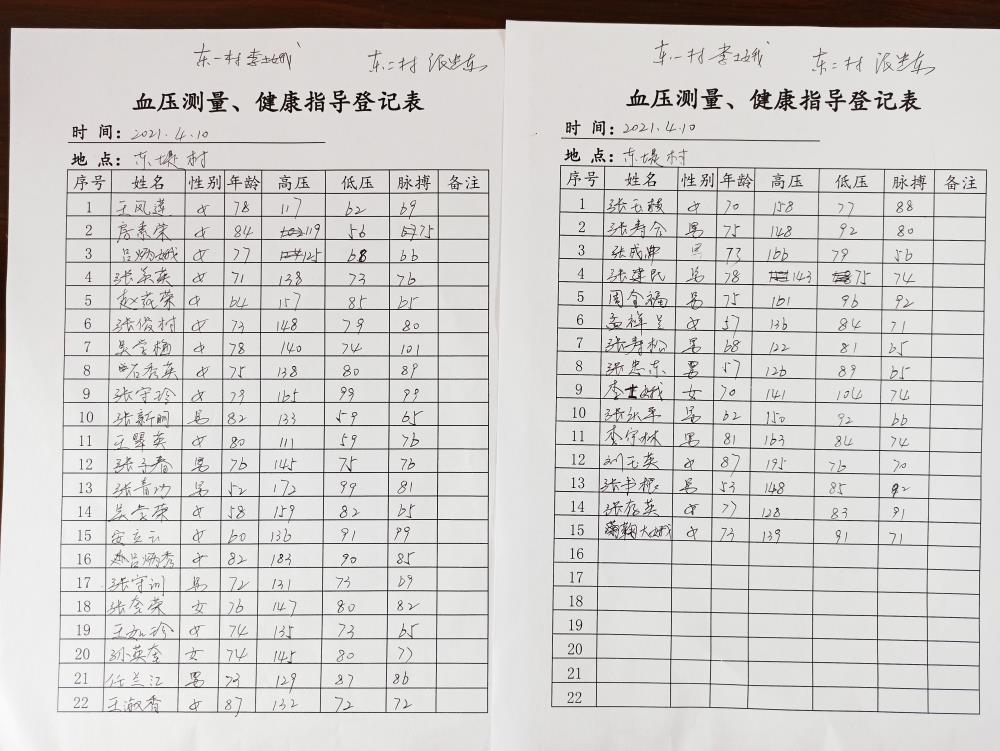 东一村 李士娥 东二村 张忠东
血压测量、健康指导登记表
时 间：2021.4.10
地 点：东堤村
序号 姓名 性别 年龄 高压 低压 脉搏 备注
1 王凤莲 女 78 117 62 69
2 房素荣 女 84 119 56 75
3 吕炳娥 女 77 125 68 66
4 张英英 女 71 138 73 76
5 赵茂荣 女 64 157 85 65
6 张俊村 女 73 148 79 80
7 吴学梅 女 78 140 74 101
8 石秀英 女 75 138 80 89
9 张守珍 女 79 165 93 99
10 张新明 男 82 133 59 65
11 王翠英 女 80 111 59 76
12 张子春 男 76 145 75 76
13 张青功 男 52 172 99 81
14 吴学荣 女 58 159 82 65
15 安立云 女 60 136 91 99
16 吕炳秀 女 82 183 90 85
17 张守训 男 72 131 73 69
18 张奎荣 女 76 147 80 82
19 王如珍 女 74 135 73 65
20 孙英奎 女 74 145 80 77
21 任兰江 男 73 129 87 86
22 王淑香 女 87 132 72 72
东一村 李士娥 东二村 张忠东
血压测量、健康指导登记表
时 间：2021.4.10
地 点：东堤村
序号 姓名 性别 年龄 高压 低压 脉搏 备注
1 张玉枝 女 70 158 77 88
2 张寿合 男 75 148 92 80
3 张成典 男 73 166 79 56
4 张建民 男 78 143 75 74
5 周金福 男 75 161 96 92
6 孟祥兰 女 57 136 84 71
7 张寿松 男 68 122 81 65
8 张忠东 男 57 126 89 65
9 李士娥 女 70 141 104 74
10 张永平 男 62 150 92 66
11 李守林 男 81 163 84 74
12 刘玉英 女 87 195 76 70
13 张书根 男 53 148 85 92
14 张存英 女 77 128 83 91
15 大娥 女 73 139 91 71
16
17
18
19
20
21
22